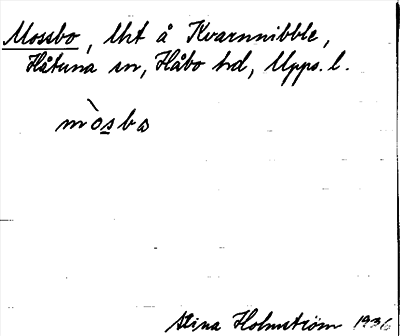 Mossbo, lht å Kvarnnibble,
Håtuna sn, Håbo hd, Upps. l.
mòsbω
Stina Holmström 1936